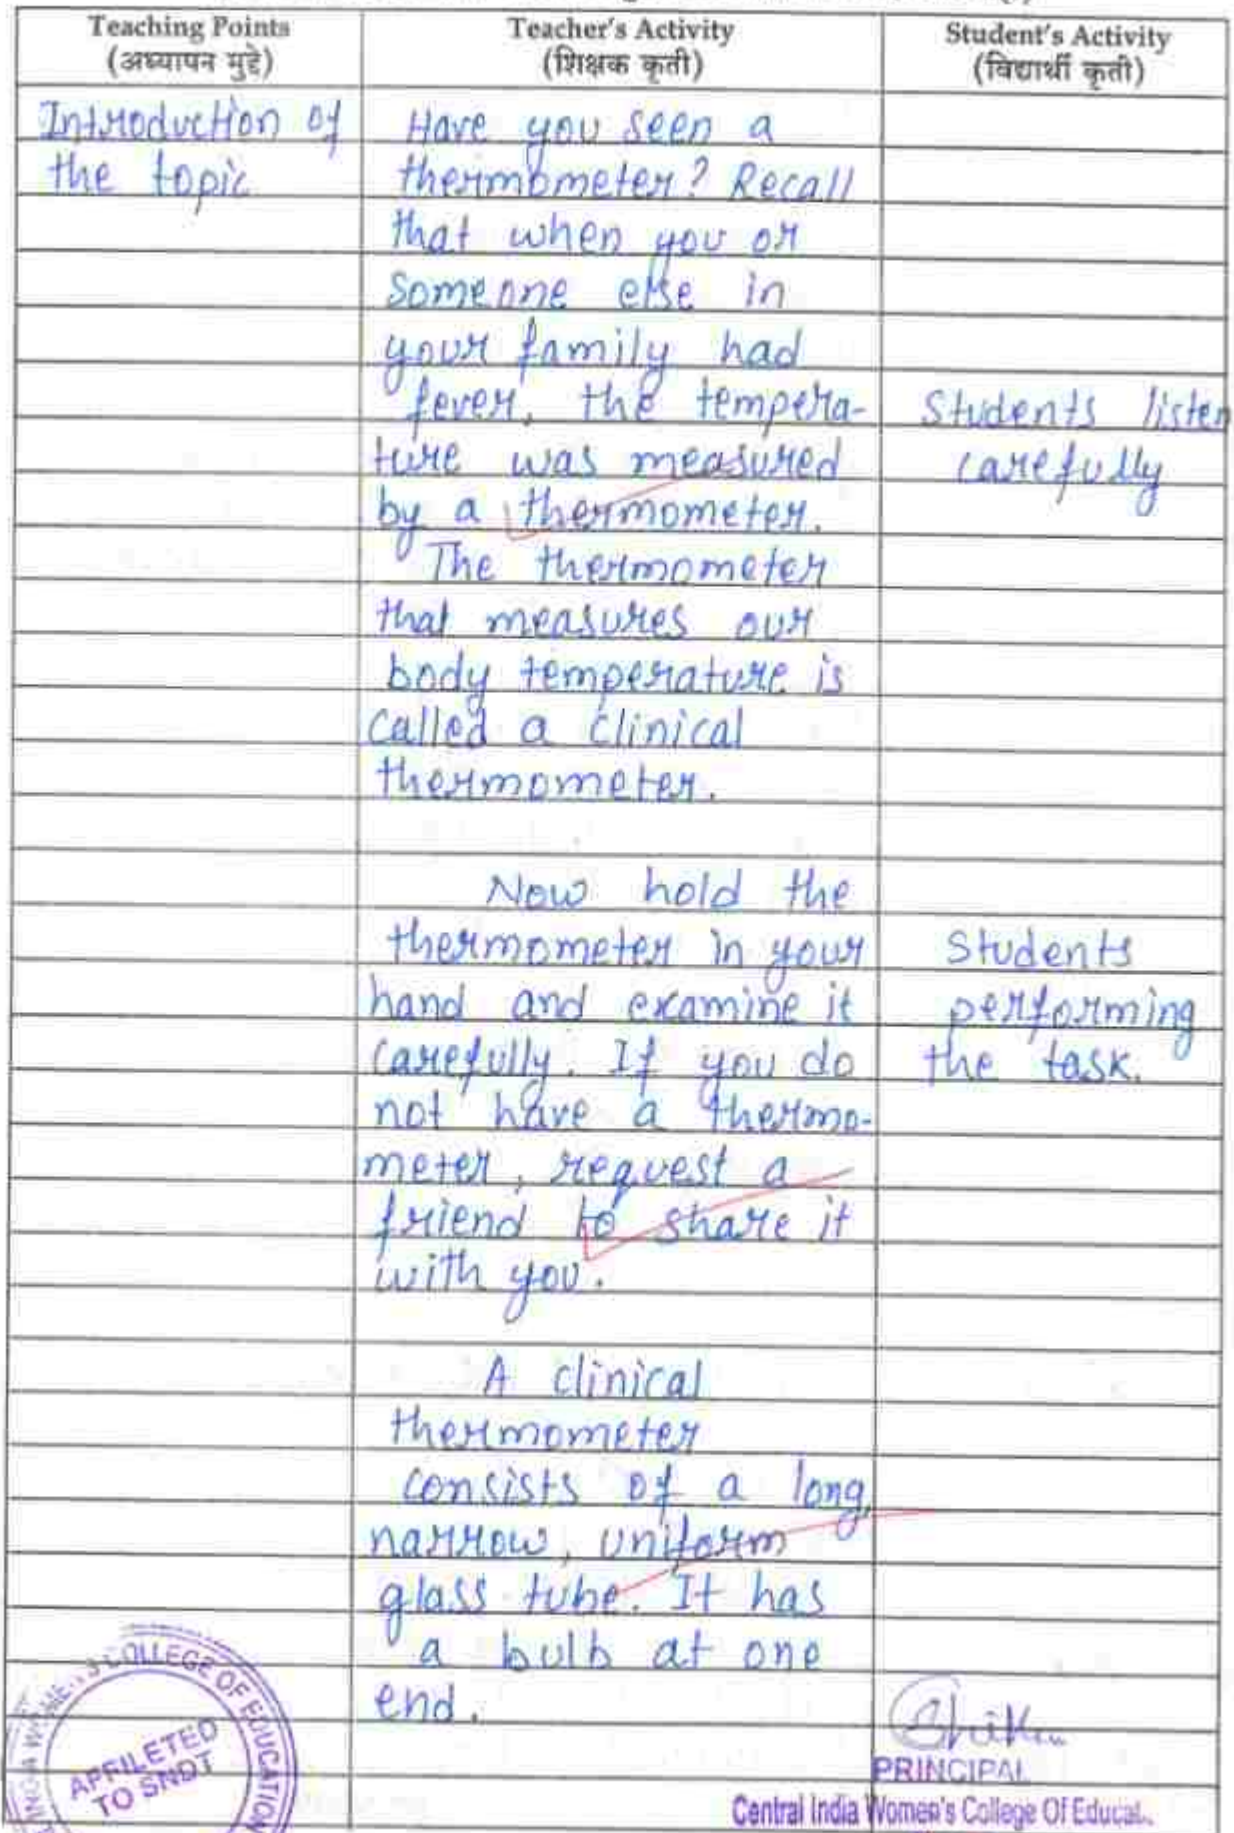 Teaching Points
(अध्यापन मुद्दे)
Teacher's Activity
(शिक्षक कृती)
Student's Activity
(विद्यार्थी कृती)
Introduction of
the topic
Have you seen a
thermometer? Recall
that when you or
someone else in
your family had
fever, the tempera-
ture was measured
by a thermometer.
The thermometer
that measures our
body temperature is
called a clinical
thermometer.
Students listen
carefully
Now hold the
thermometer in your
hand and examine it
carefully. If you do
not have a thermo-
meter, request a
friend to share it
with you.
Students
performing
the task.
A clinical
thermometer
consists of a long,
narrow, uniform
glass tube. It has
a bulb at one
end.
COLLEGE OF EDUCATION
AFFILETED
TO SNDT
PRINCIPAL
Central India Women's College Of Educat..